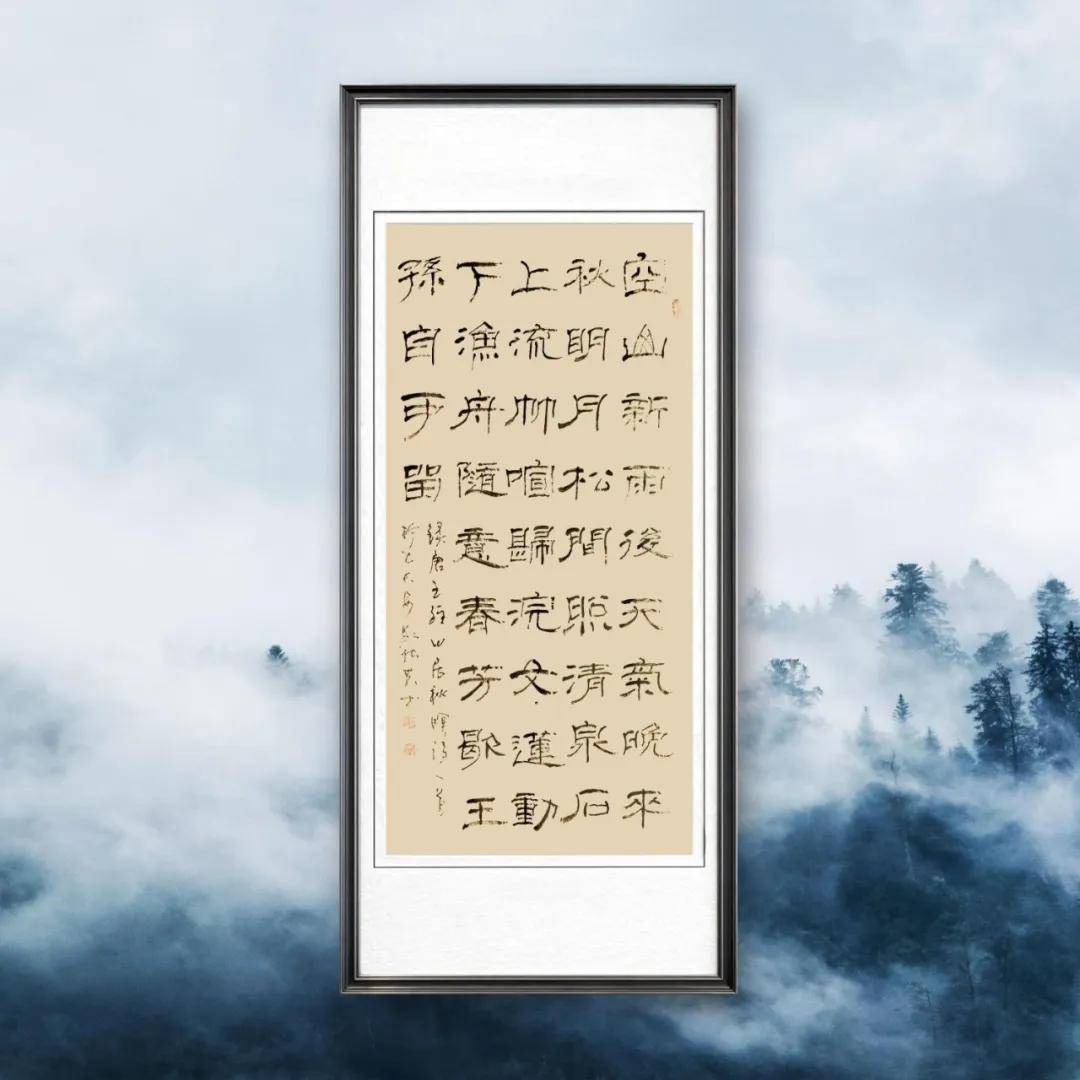 空山新雨後天氣晚來
秋明月松間照清泉石
上流竹喧歸浣女蓮動
下漁舟隨意春芳歇王
孫自可留
録唐王維山居秋暝詩一首